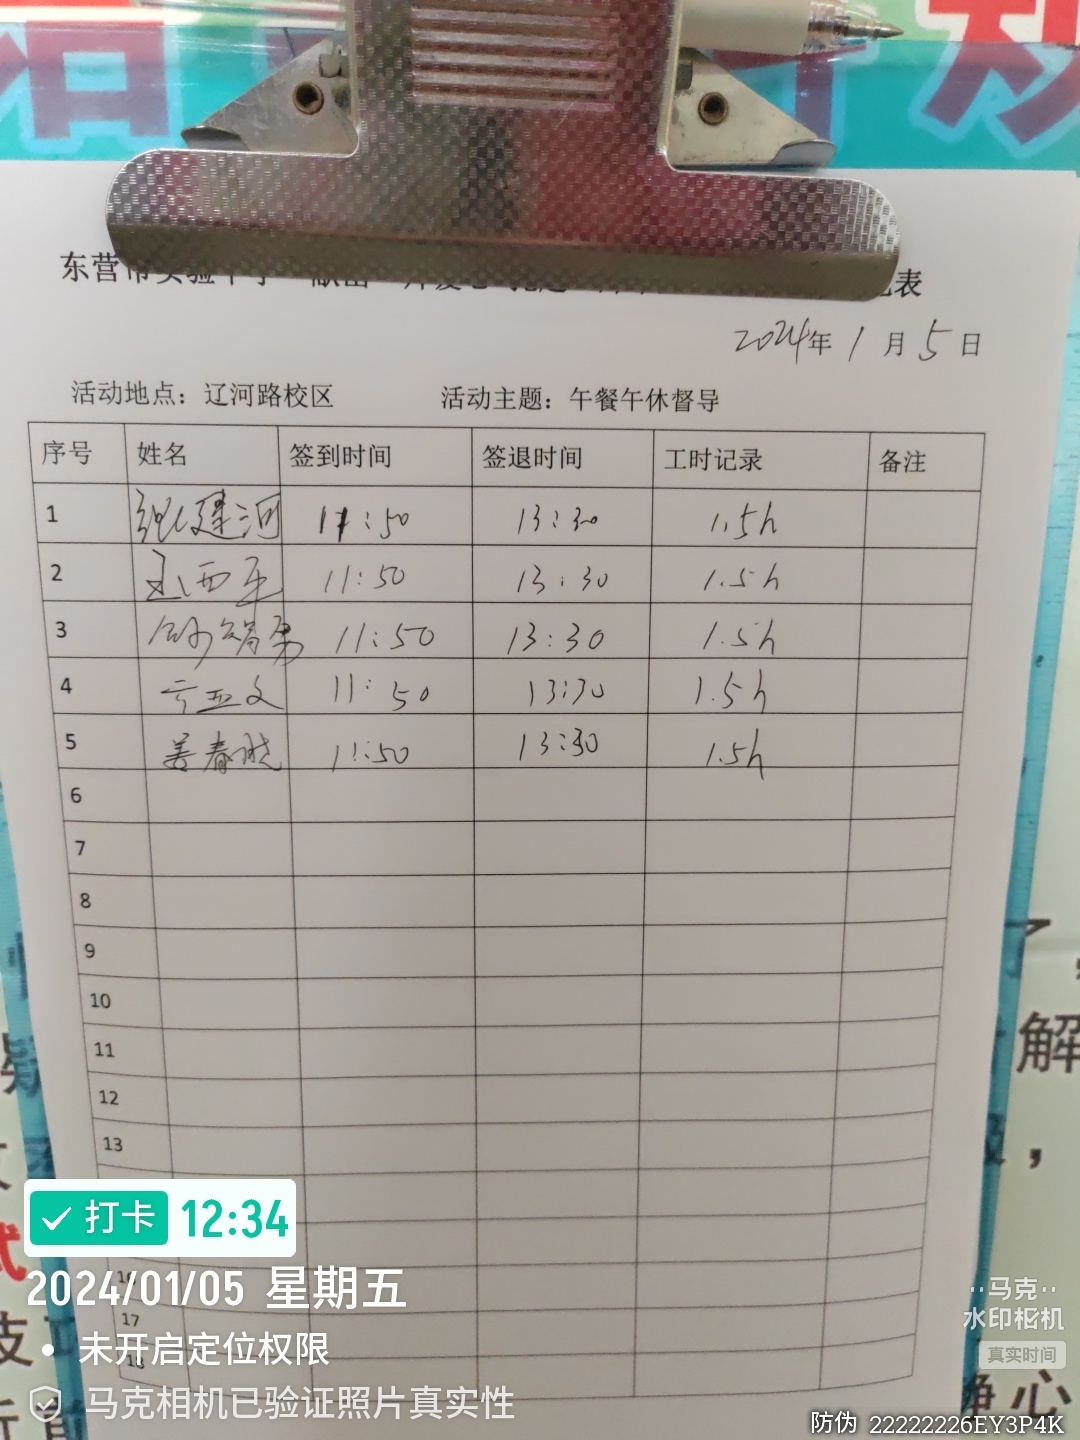 东营市实验中学
表
2024年1月5日
活动地点：辽河路校区 活动主题：午餐午休督导
序号 姓名 签到时间 签退时间 工时记录 备注
1 建河 11:50 13:30 1.5h
2 11:50 13:30 1.5h
3 11:50 13:30 1.5h
4 亚文 11:50 13:30 1.5h
5 姜春晓 11:50 13:30 1.5h
6
7
8
9
10
11
12
13
16
17
18
解
打卡 12:34
2024/01/05 星期五
未开启定位权限
马克相机已验证照片真实性
马克
水印相机
真实时间
静心
防伪 22222226EY3P4K